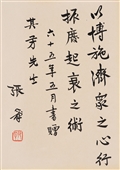 以博施濟眾之心行
振廢起衰之術
六十五年五月書贈
其芳先生
張羣